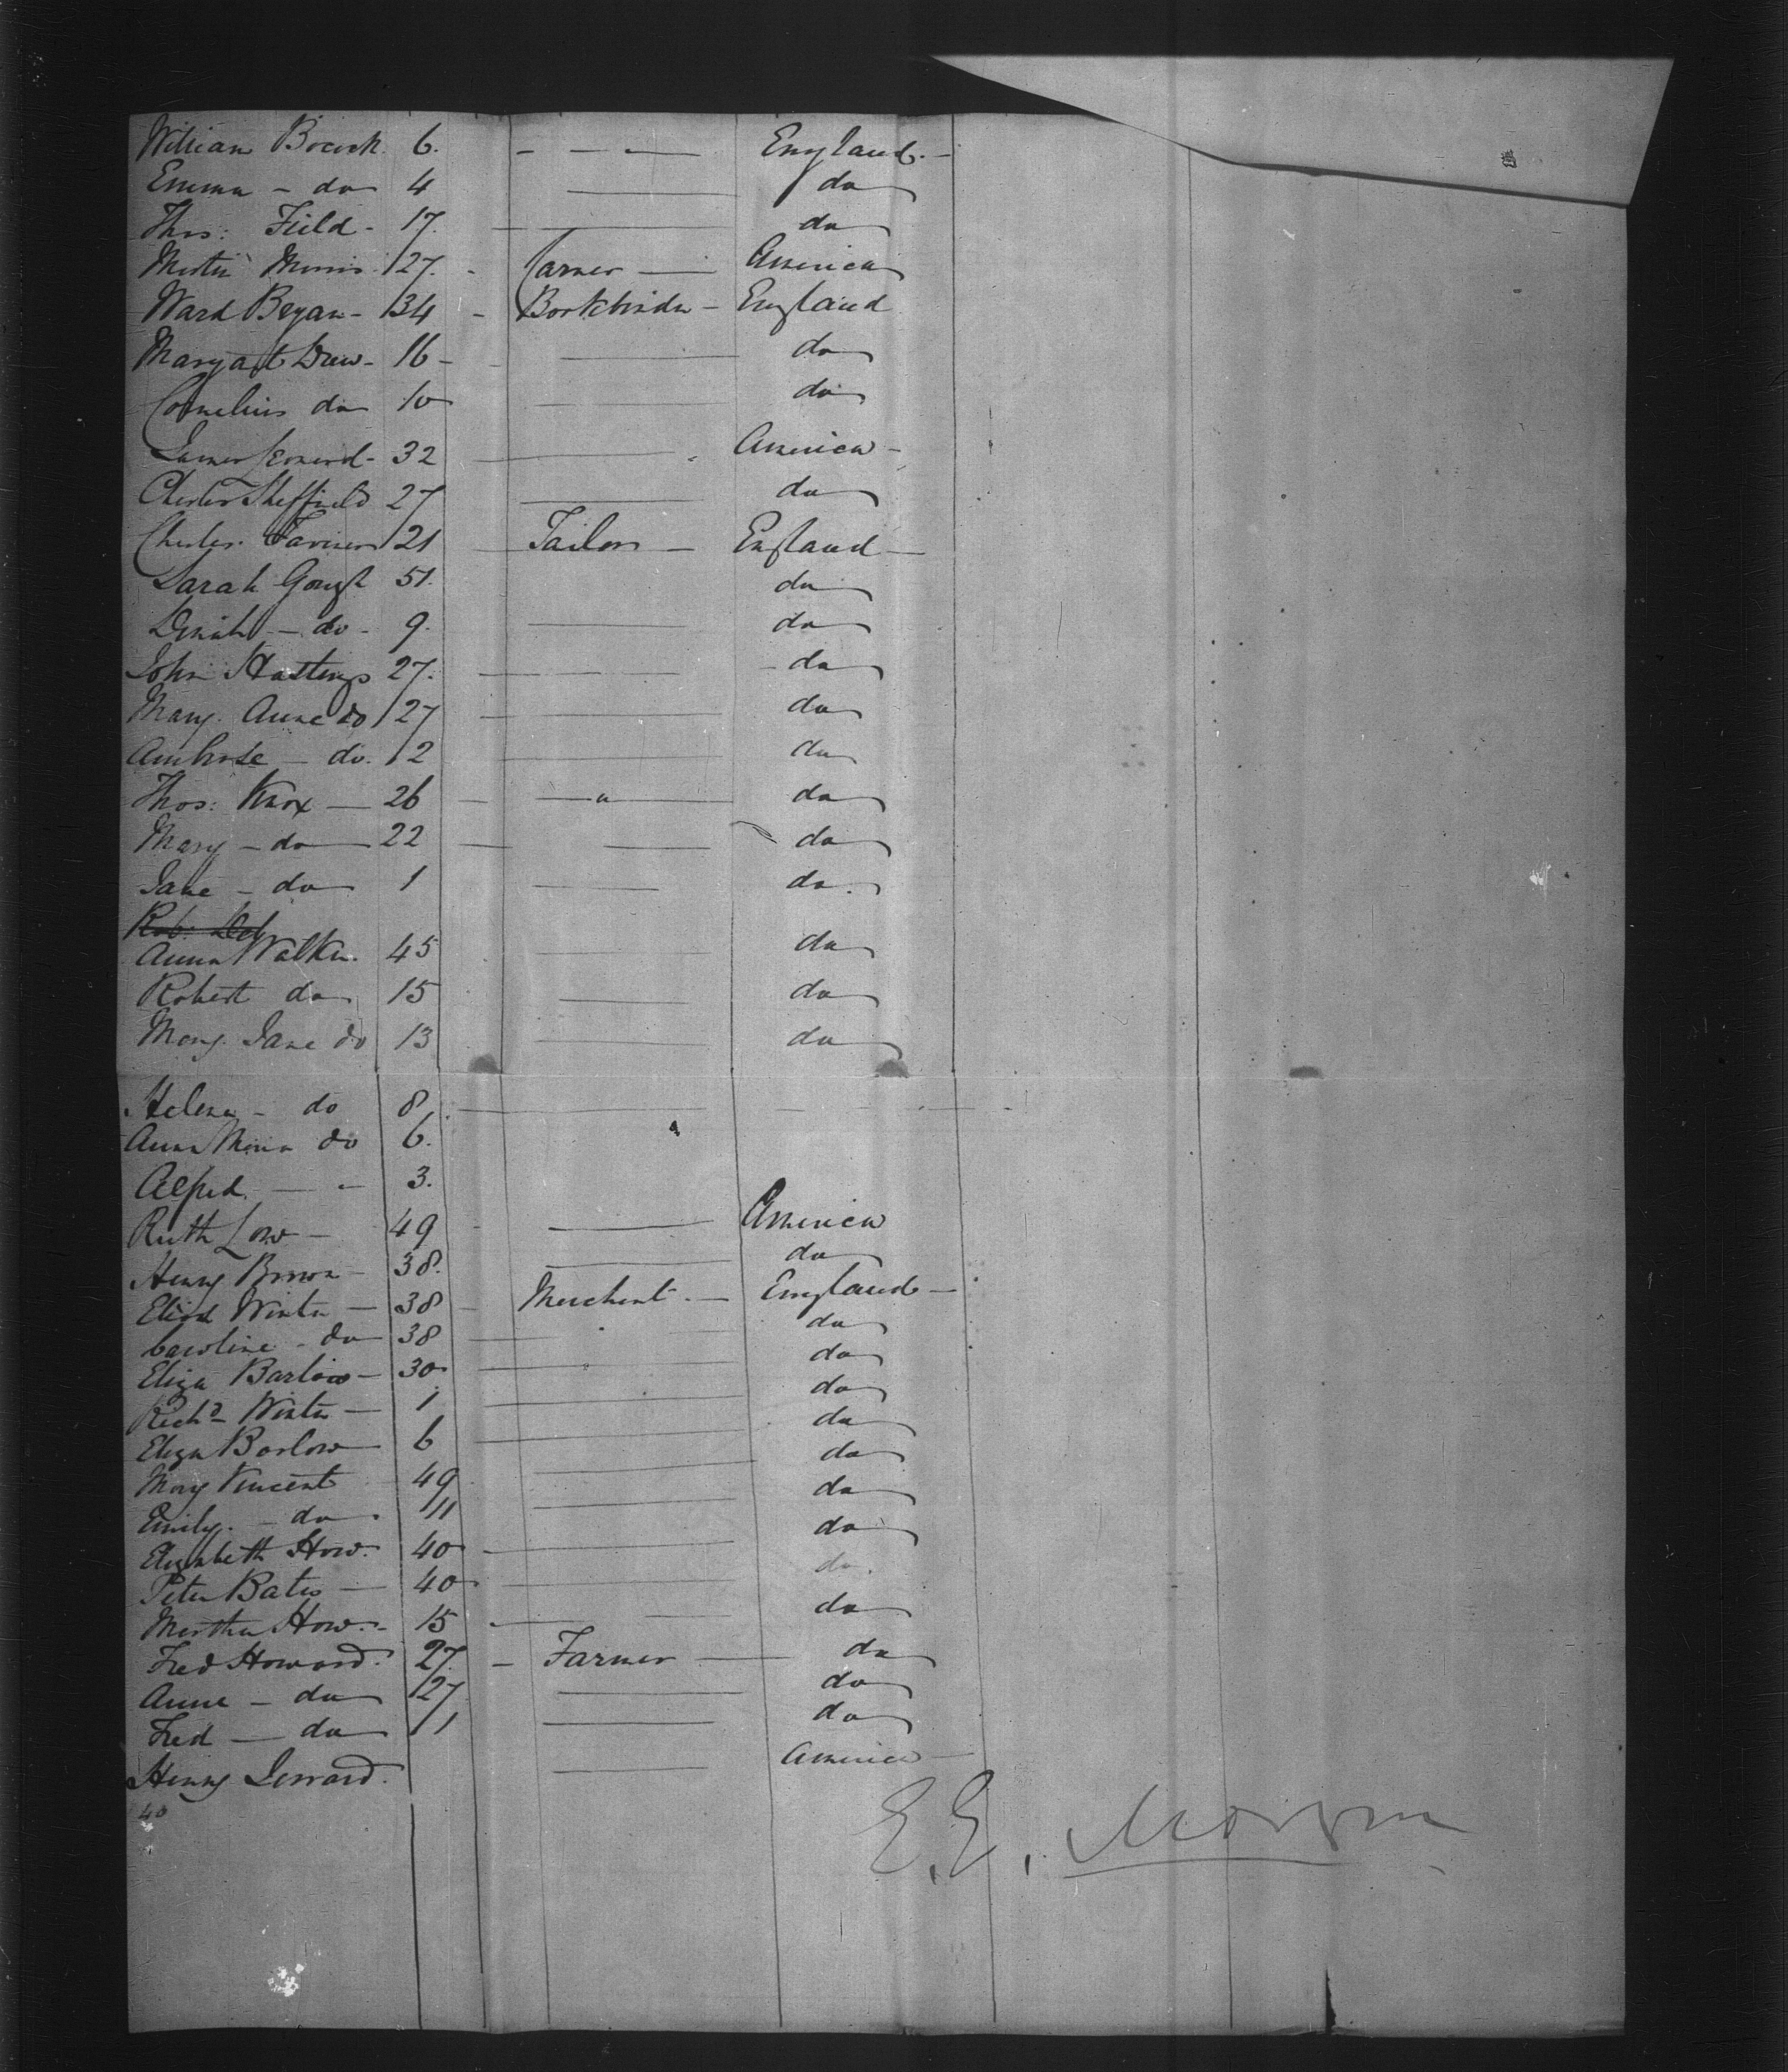 William Bocock. 6. England.
Emma - do 4 do
Thos: Feild - 17. do
Martin Morris 27. Farmer America
Ward Began - 34 - Bookbinder - England
Margaret Drew - 16 - do
Cornelius do 10 do
James Leonard - 32 America -
Charles Sheffield 27 do
Charles Taviner 21 Tailor - England
Sarah Gough 51. do
Dinah - do - 9. do
John Hastings 27. do
Mary. Anne do 27 do
Ambrose - do. 2 do
Thos: Knox - 26 do
Mary - do 22 do
Jane - do 1 do.
Rob:
Anna Walker. 45 do
Robert do 15 do
Mary Jane do 13 do
Helena - do 8.
Anna Maria do 6.
Alfred. - " 3.
Ruth Low - 49 America
Henry Brown - 38. do
Winter - 38 - Merchant. - England -
Caroline - do 38 do
Eliza Barlow - 30 do
Richd Winter - 1 do
Eliza Barlow 6 do
Mary Vincent 49 do
Emily. - do. 11 do
Elizabeth How. 40 do
Peter Bates - 40 do.
Martha How. - 15 do
Fred Howard. 27. - Farmer do
Anne - do 27 do
Fred - do 1 do
Henry Leonard. America -
40
E.E. Morgan